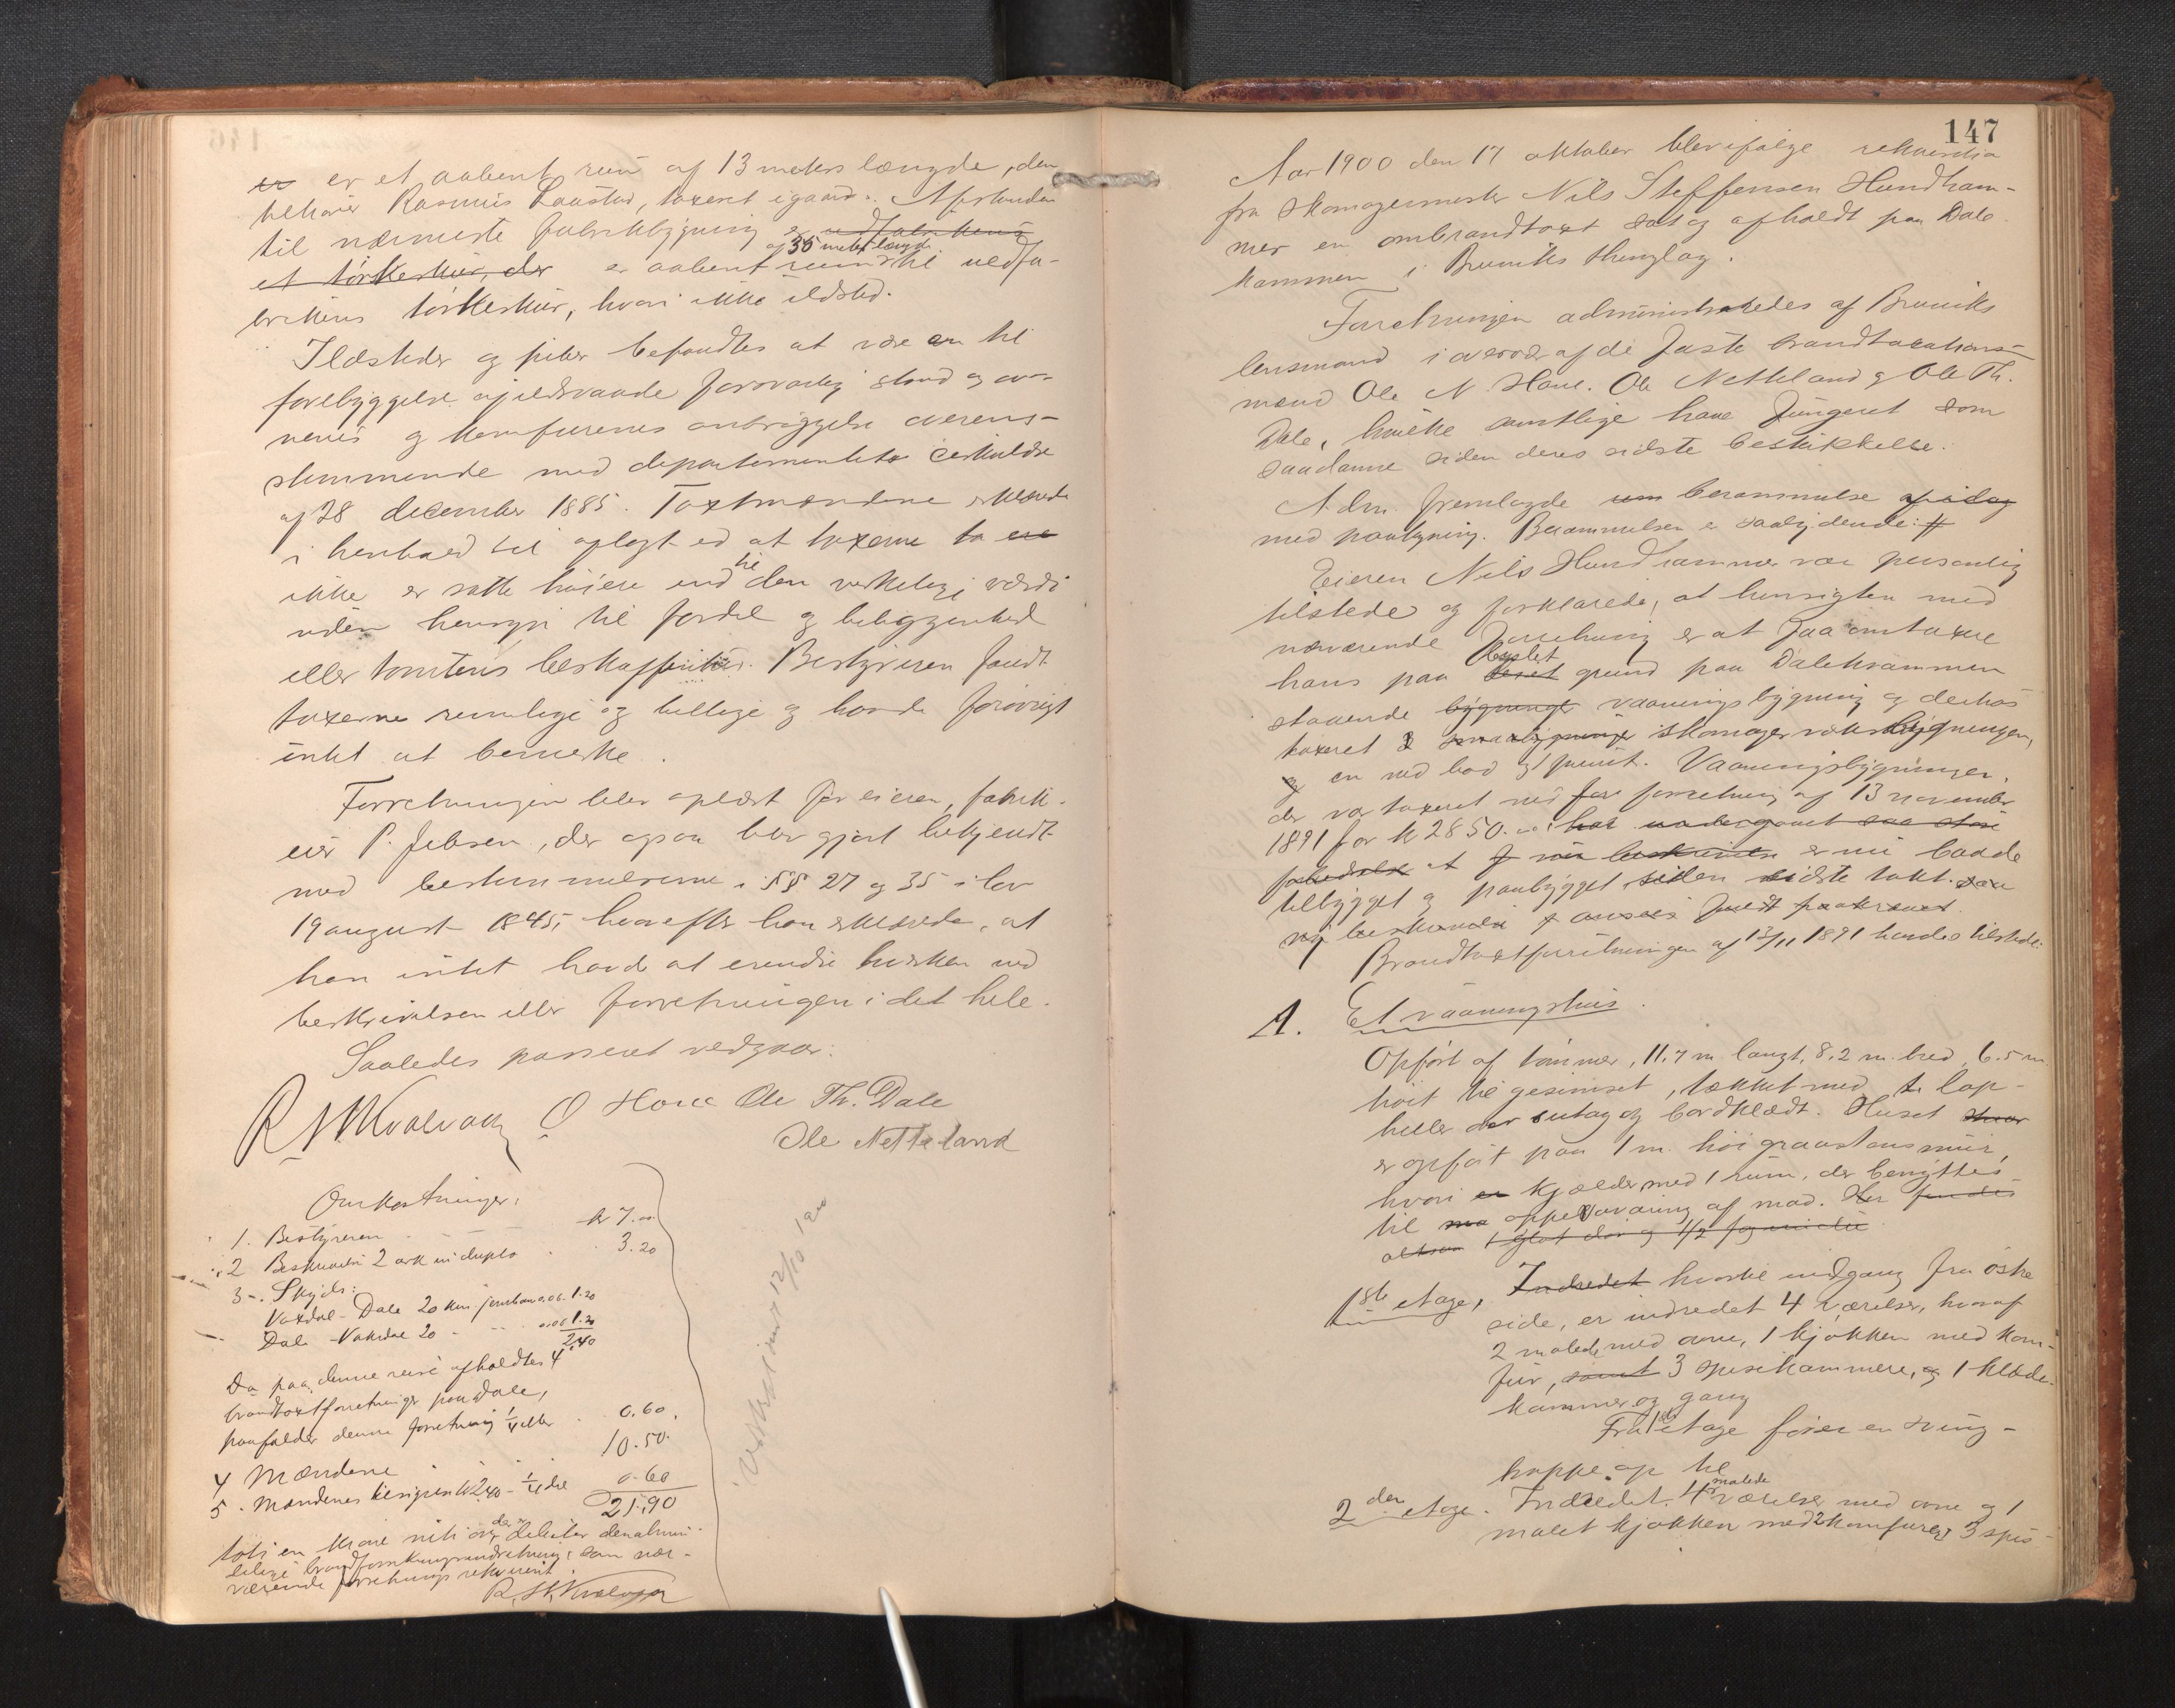 er er et aabent rum af 13 meters længde, den
tilhører Rasmus Laastad, taxeret igaar. Afstanden
til nærmeste fabrikbygning er vedfabrikens
af 35 meters længde
et tørkeskur, der er aabent rum til uldfa-
brikens tørkeskur, hvori ikke ildsted.
Ildsteder og piber befandtes at være en til
forebyggelse af ildsvaade forsvarlig stand og ov-
nenes og komfurenes anbringelse overens-
stemmende med departementets cirkulære
af 28 december 1885. Taxtmændene erklærede
i henhold til aflagt ed at taxerne to ere
ikke er satte høiere end til den virkelige værdi
uden hensyn til fordel og beliggenhed
eller tomtens beskaffenhed. Bestyreren fandt
taxerne rimelige og billige og havde forøvrigt
intet at bemerke.
Forretningen blev oplæst for eieren, fabrik-
eier P. Jebsen, der ogsaa blev gjort bekjendt
med bestemmelserne i §§ 27 og 35 i lov
19 august 1845, hvorefter han erklærede, at
han intet havde at erindre hverken ved
beskrivelsen eller forretningen i det hele.
Saaledes passeret vedgaar:
R. N. Kvalvaag O Hove Ole Th. Dale
Ole Netteland
Omkostninger:
1. Bestyreren kr 7.00
2 Beskrivelse 2 ark in duplo 3.20
3. Skyds:
Vaxdal - Dale 20 km. jernbane a 06. 1.20
Dale - Vaksdal 20 - a 06 1.20
2.40
Da paa denne reise afholdtes 4
brandtaxtforretninger paa Dale,
paafalder denne forretning 1/4 eller 0.60
4 Mændene 10.50.
5. Mændenes reisepenge kr 2.40 - 1/4 del 0.60
21.90
toti en krone niti øre der debiter denalmin-
delige brandforsikringsindretning som nær-
værende forretnings rekvirent.
R. N. Kvalvaag
Udskrevet 12/10 1900
147
Aar 1900 den 17 oktober blev ifølge rekvisition
fra skomagermester Nils Steffensen Hundham-
mer en ombrandtaxt sat og afholdt paa Dale-
kammen i Bruviks thinglag.
Forretningen administreredes af Bruviks
lensmand i overvær af de faste brandtaxations-
mænd Ole N. Hove. Ole Netteland og Ole Th.
Dale, hvilke samtlige have fungeret som
saadanne siden deres sidste beskikkelse.
Adm. fremlagde um berammelse af idag
med paategning. Berammelsen er saalydende: #
Eieren Nils Hundhammer var personlig
tilstede og forklarede, at hensigten med
nærværende forretning er at faa omtaxere
bygslet
hans paa leiet grund paa Dalekvammen
staaende bygninger vaaningsbygning og derhos
taxeret 2 smaabygninger skomagerværkstedbygningen,
og en ved bod og privet. Vaaningsbygningen,
der var taxeret ved for forretning af 13 november
1891 for kr 2850.00 har undergaaet saa store
forandr at f nøie beskrivelse er nu baade
tilbygget og paabygget siden sidste takt. saa
ny beskrivelse f ansees fuldt paakrævet.
Brandtaxtforretningen af 13/11 1891 havdes tilstede.
A. Et vaaningshus.
Opført af tømmer, 11.7 m. langt, 8.2 m. bred, 6.5 m.
høit til gesimset, tækket med t. lap-
heller over sutag og bordklædt. Huset staar
er opført paa 1 m. høi graastensmur,
hvori en kjælder med 1 rum, der benyttes
til ma oppebevaring af mad. Her findes
altsaa 1 glat dør og 1/2 fag vindu
1ste etage, Indredet hvortil indgang fra østre
side, er indredet 4 værelser, hvoraf
2 malede, med ovne, 1 kjøkken med kom-
fur, samt 3 spisekammere, og 1 klæde-
kammer og gang
Fra 1ste etage fører en sving-
trappe op til
2den etage. Indredet. 4 malede værelser med ovne og 1
malet kjøkken med 2 komfurer, 3 spis-